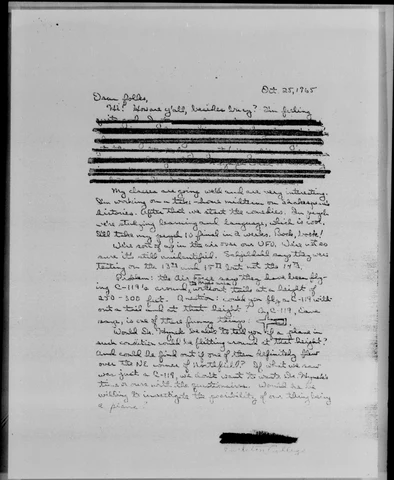 Oct. 25, 1965
Dear folks,
Hi! How are y'all, besides busy? I'm feeling
My classes are going well and are very interesting.
I'm working on a take-home midterm on Shakespeare's
histories. After that we start the comedies. In psych
we're studying learning and language, which is cool.
I'll take my psych 10 final in 2 weeks. Book, book!
We're sort of up in the air over our UFO. We're
sure it's still unidentified. say they were
testing on the 13th and 15th but not the 14th.
Problem: the Air Force says they have been fly-
ing C-119's around, without tails at a height of
250-300 feet. Question: could you fly a C-119 with-
out a tail and at that height? A C-119, Dave
says, is one of these funny things:
Would Dr. Hynek be able to tell you if a plane in
such condition could be flitting around at that height?
And could he find out if one of them definitely flew
over the NE corner of Northfield? If what we saw
was just a C-119, we don't want to waste Dr. Hynek's
time or ours with the questionnaire. Would he be
willing to investigate the possibility of our thing being
a plane?
Carleton College